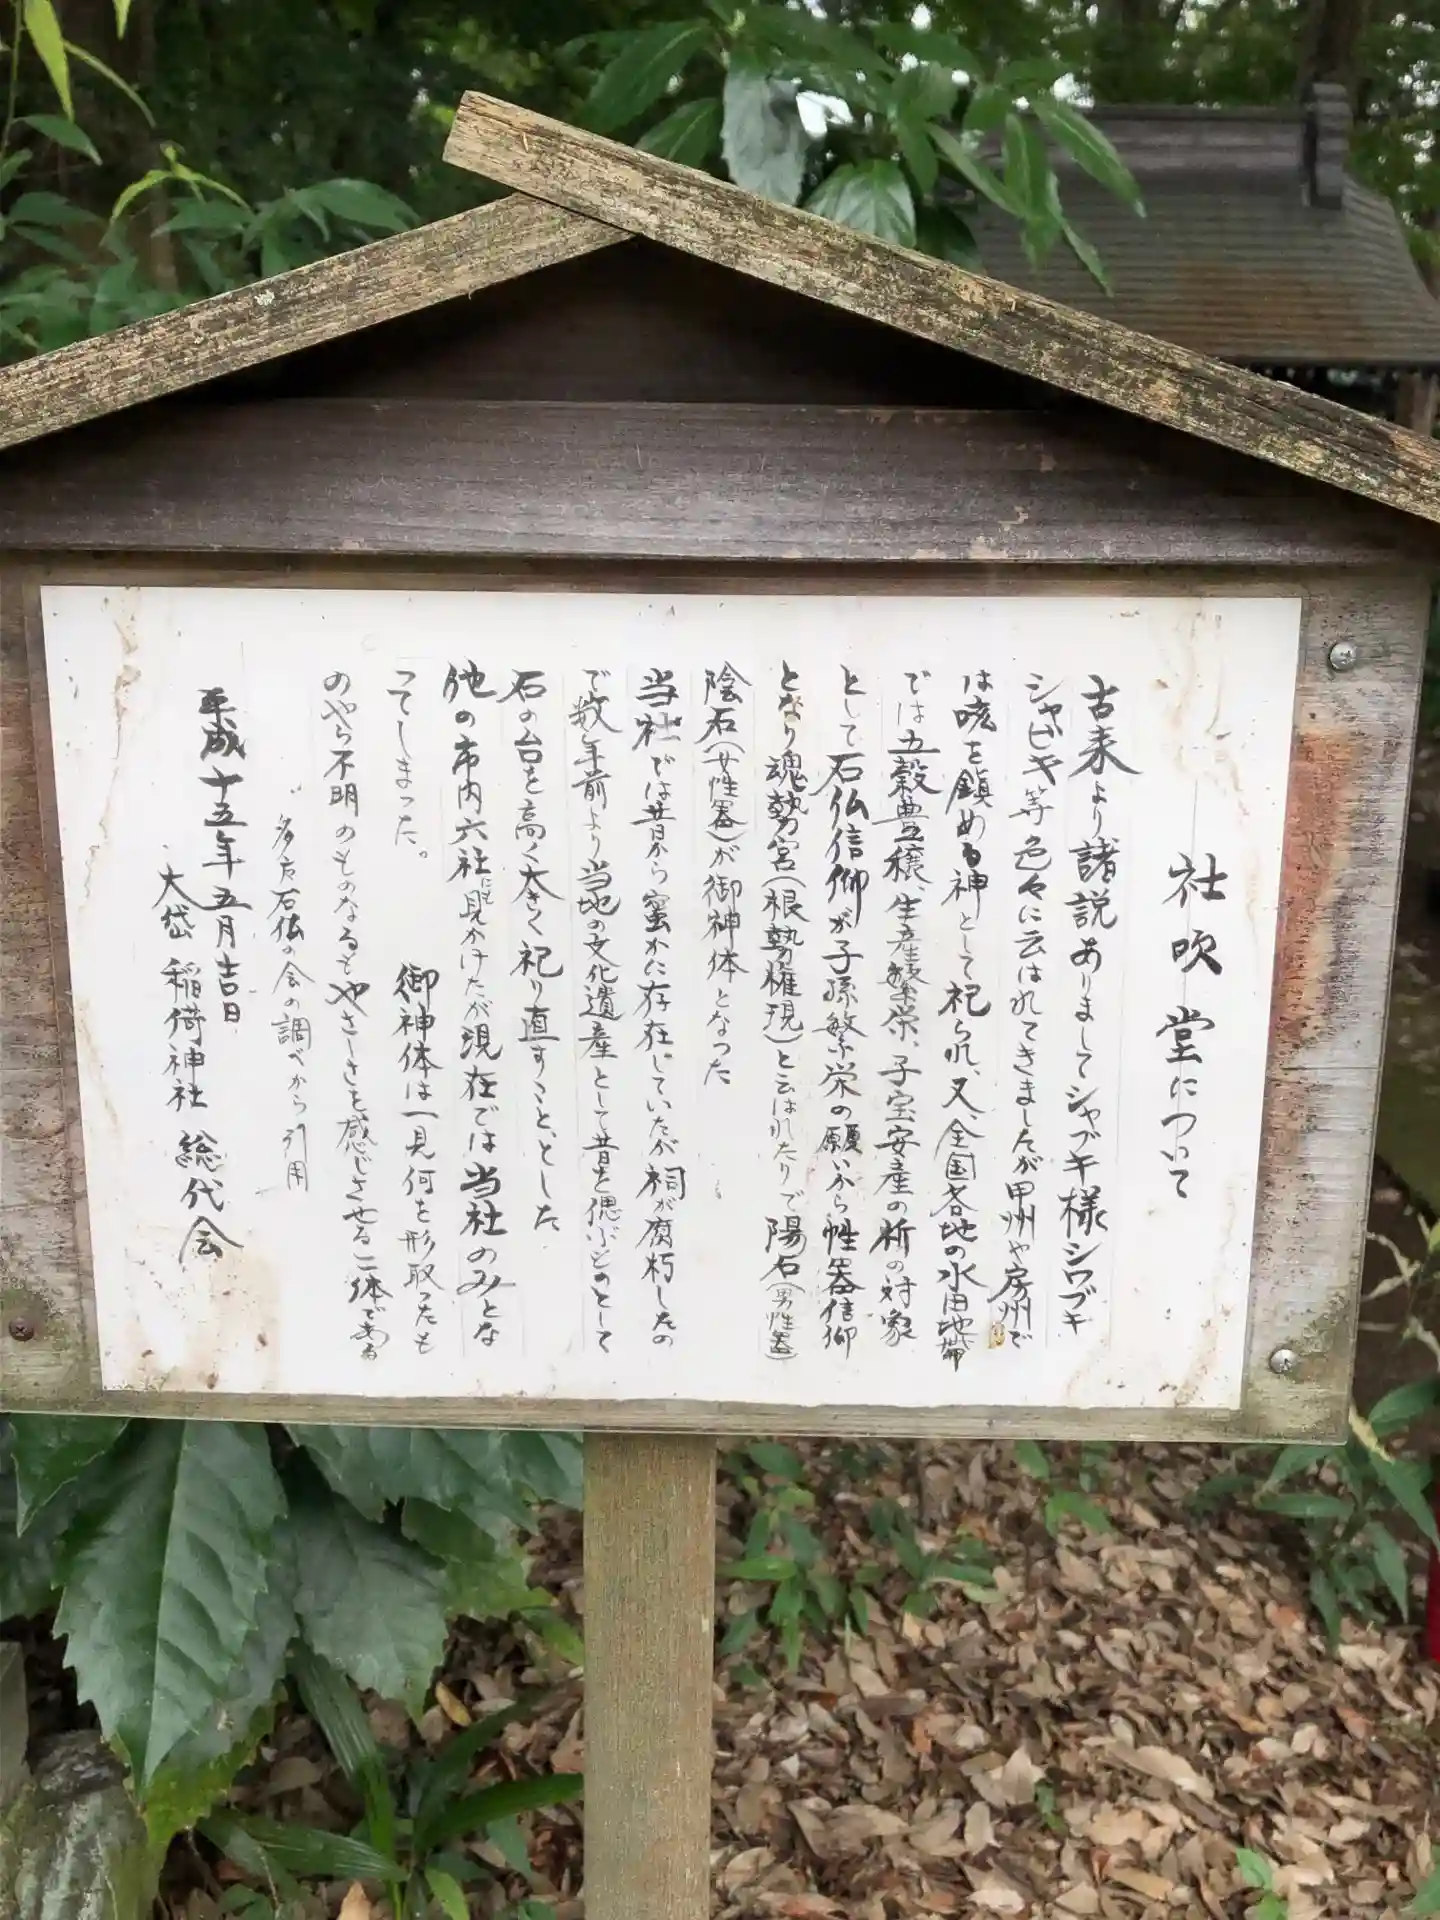 社吹堂について
古来より諸説ありましてシャブキ様シワブキ
シャビキ等色々に云はれてきましたが甲州や房州で
は咳を鎮める神として祀られ、又、全国各地の水田地帯
では五穀豊穣、生産繁栄、子宝安産の祈の対象
として石仏信仰が子孫繁栄の願いから性器信仰
となり魂勢宮(根勢権現)と云はれたりで陽石(男性器)
陰石(女性器)が御神体となった
当社では昔から蜜かに存在していたが祠が腐朽したの
で数年前より当地の文化遺産として昔を偲ぶものとして
石の台を高く大きく祀り直すこと、とした
他の市内六社にも見かけたが現在では当社のみとな
ってしまった。 御神体は一見何を形取ったも
のやら不明のものなるもやさしさを感じさせる二体である
多古石仏の会の調べから引用
平成十五年五月吉日
大岱稲荷神社 総代会